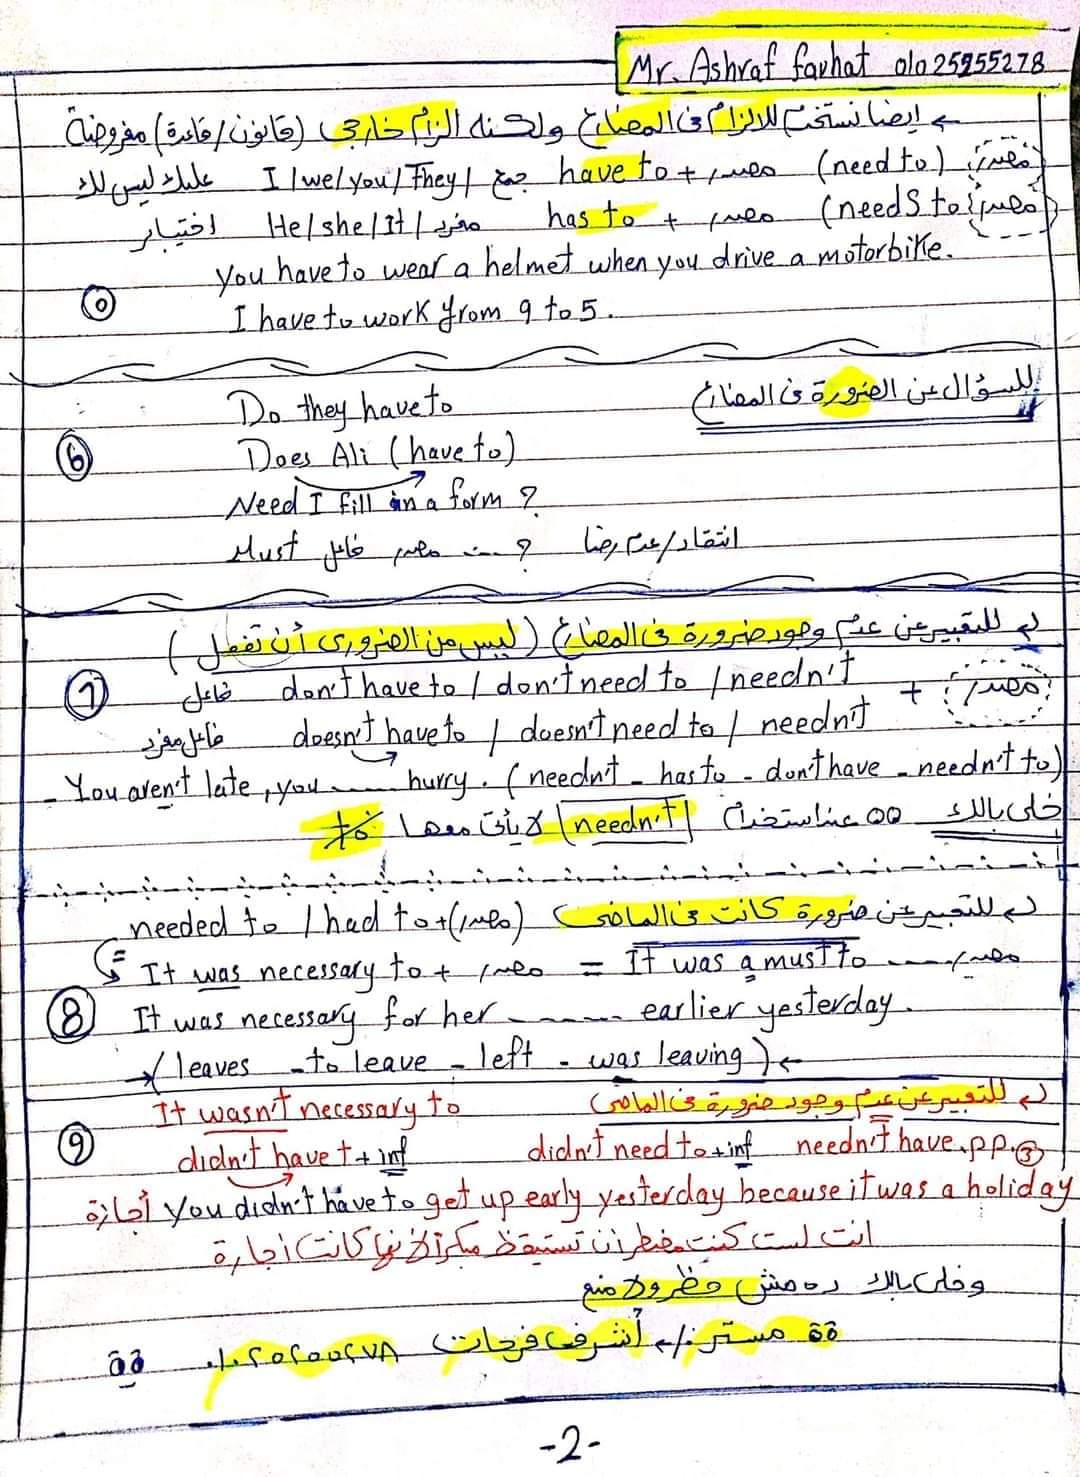 Mr. Ashraf farhat 01025255278
← ايضا نستخدم للالزام فى المضارع ولكنه الزام خارجى (قانون/قاعدة) مفروضة
I/we/you/They/ جمع have to + مصدر (need to) مصدر عليك ليس لك
He/she/It/ مفرد has to + مصدر (needs to) مصدر اختيار
You have to wear a helmet when you drive a motorbike.
٥ I have to work from 9 to 5.
للسؤال عن الضرورة فى المضارع
Do they have to
6 Does Ali (have to)
Need I fill in a form ?
Must فاعل مصدر ... ? انتقاد/عدم رضا
للتعبير عن عدم وجود ضرورة فى المضارع (ليس من الضرورى أن تفعل)
7 فاعل don't have to / don't need to / needn't + مصدر
فاعل مفرد doesn't have to / doesn't need to / needn't
- You aren't late, you ...... hurry. (needn't - has to - don't have - needn't to)
خلى بالك عند استخدام needn't لا يأتى معها to
للتعبير عن ضرورة كانت فى الماضى needed to / had to + (مصدر)
= It was necessary to + مصدر = It was a must to ...... مصدر
8 It was necessary for her ...... earlier yesterday.
(leaves - to leave - left - was leaving)
للتعبير عن عدم وجود ضرورة فى الماضى It wasn't necessary to
9 didn't have t + inf didn't need to + inf needn't have. p.p. 3
You didn't have to get up early yesterday because it was a holiday أجازة
انت لست كنت مضطر ان تستيقظ مبكرا لانها كانت اجازة
وخلى بالك ده مش حظر ولا منع
مستر / أشرف فرحات ٠١٠٢٥٢٥٥٢٧٨
-2-